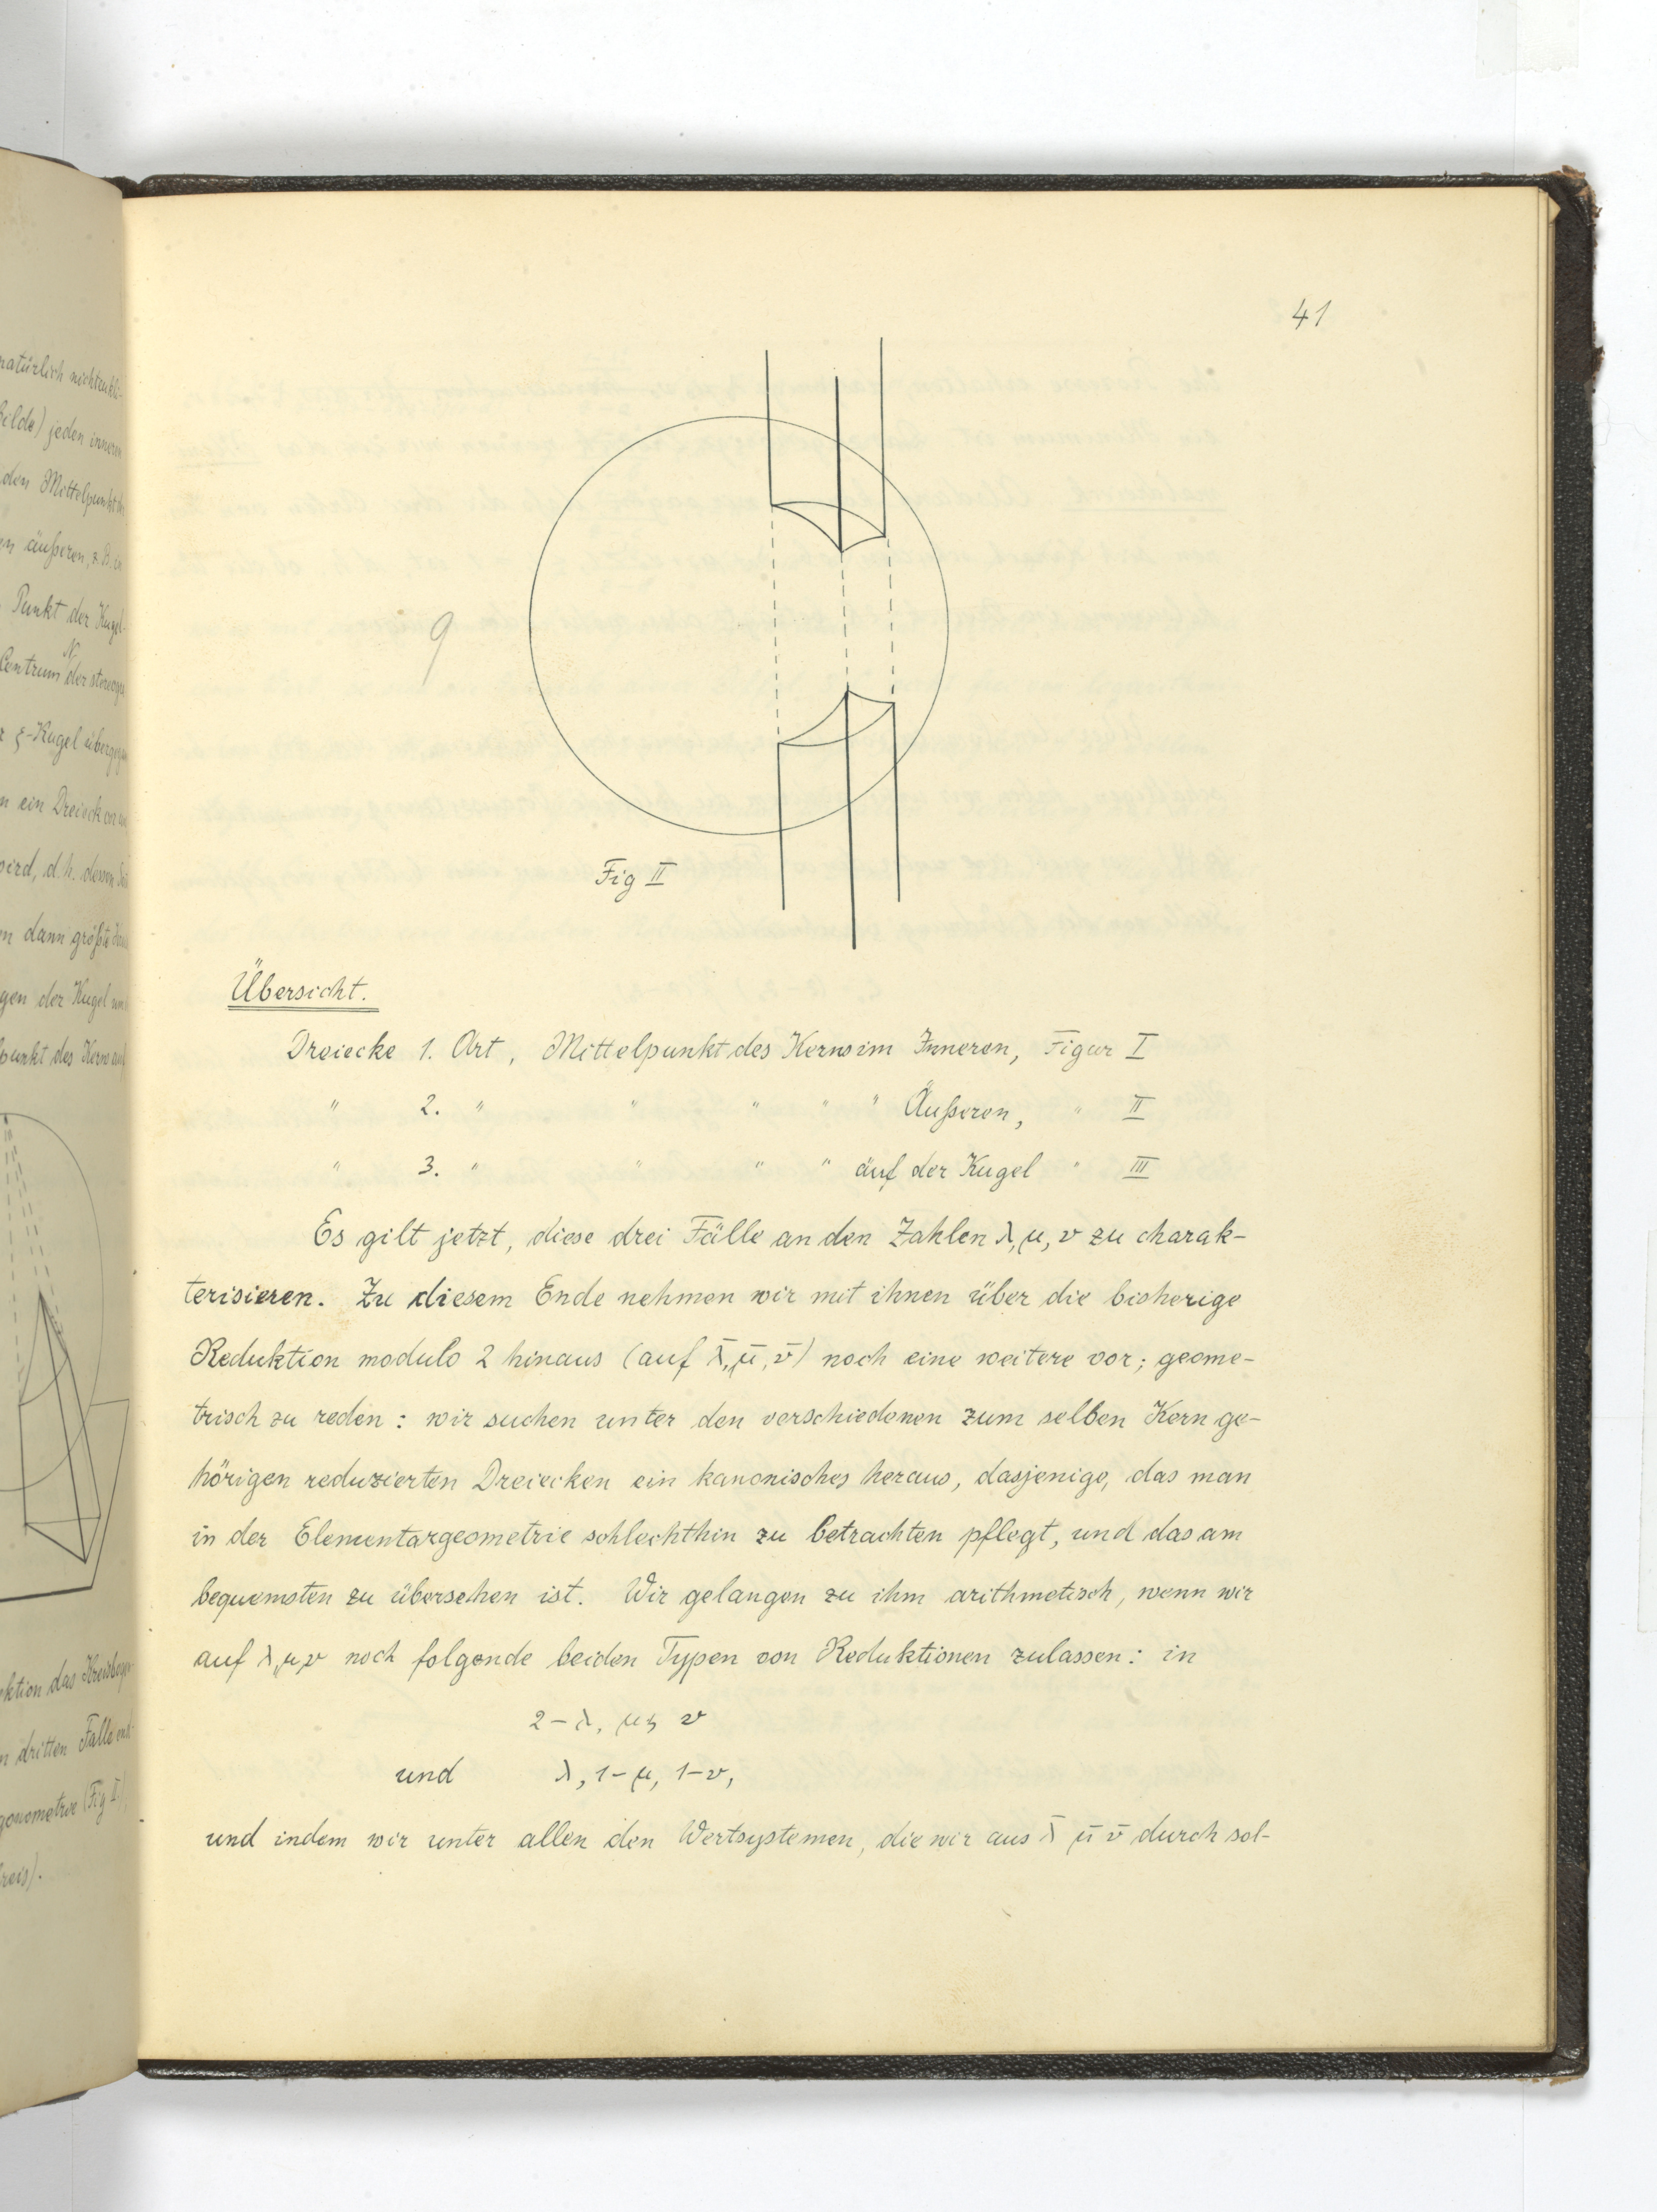 41
9
Fig II
Übersicht.
Dreiecke 1. Art, Mittelpunkt des Kerns im Inneren, Figur I
" 2. " " " " " Äußeren, " II
" 3. " " " " auf der Kugel " III
Es gilt jetzt, diese drei Fälle an den Zahlen λ, μ, ν zu charak-
terisieren. Zu diesem Ende nehmen wir mit ihnen über die bisherige
Reduktion modulo 2 hinaus (auf λ̄, μ̄, ν̄) noch eine weitere vor; geome-
trisch zu reden: wir suchen unter den verschiedenen zum selben Kern ge-
hörigen reduzierten Dreiecken ein kanonisches heraus, dasjenige, das man
in der Elementargeometrie schlechthin zu betrachten pflegt, und das am
bequemsten zu übersehen ist. Wir gelangen zu ihm arithmetisch, wenn wir
auf λ, μ, ν noch folgende beiden Typen von Reduktionen zulassen: in
2-λ, μ, ν
und λ, 1-μ, 1-ν,
und indem wir unter allen den Wertsystemen, die wir aus λ̄ μ̄ ν̄ durch sol-
natürlich nichteukli-
Bilde) jeden inneren
den Mittelpunkt
äußeren, z. B. in
Punkt der Kugel
N
Centrum der stereogr
ξ-Kugel überge
ein Dreieck
wird, d.h. dessen
dann größte
gen der Kugel
punkt des Kerns auf
ktion das Kreisboge
dritten Falle
gonometrie (Fig I)
reis).